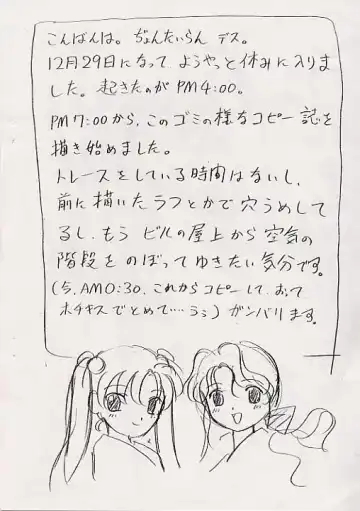 こんばんは。ぢょんたいらん デス。
12月29日になって ようやっと休みに入りま
した。起きたのが PM4:00。
PM7:00から、このゴミの様なコピー誌を
描き始めました。
トレースをしている時間はないし、
前に描いたラフとかで穴うめして
るし、もう ビルの屋上から空気の
階段をのぼってゆきたい気分です。
(今、AM0:30、これからコピーして、おって
ホチキスでとめて…うぅ) ガンバります。